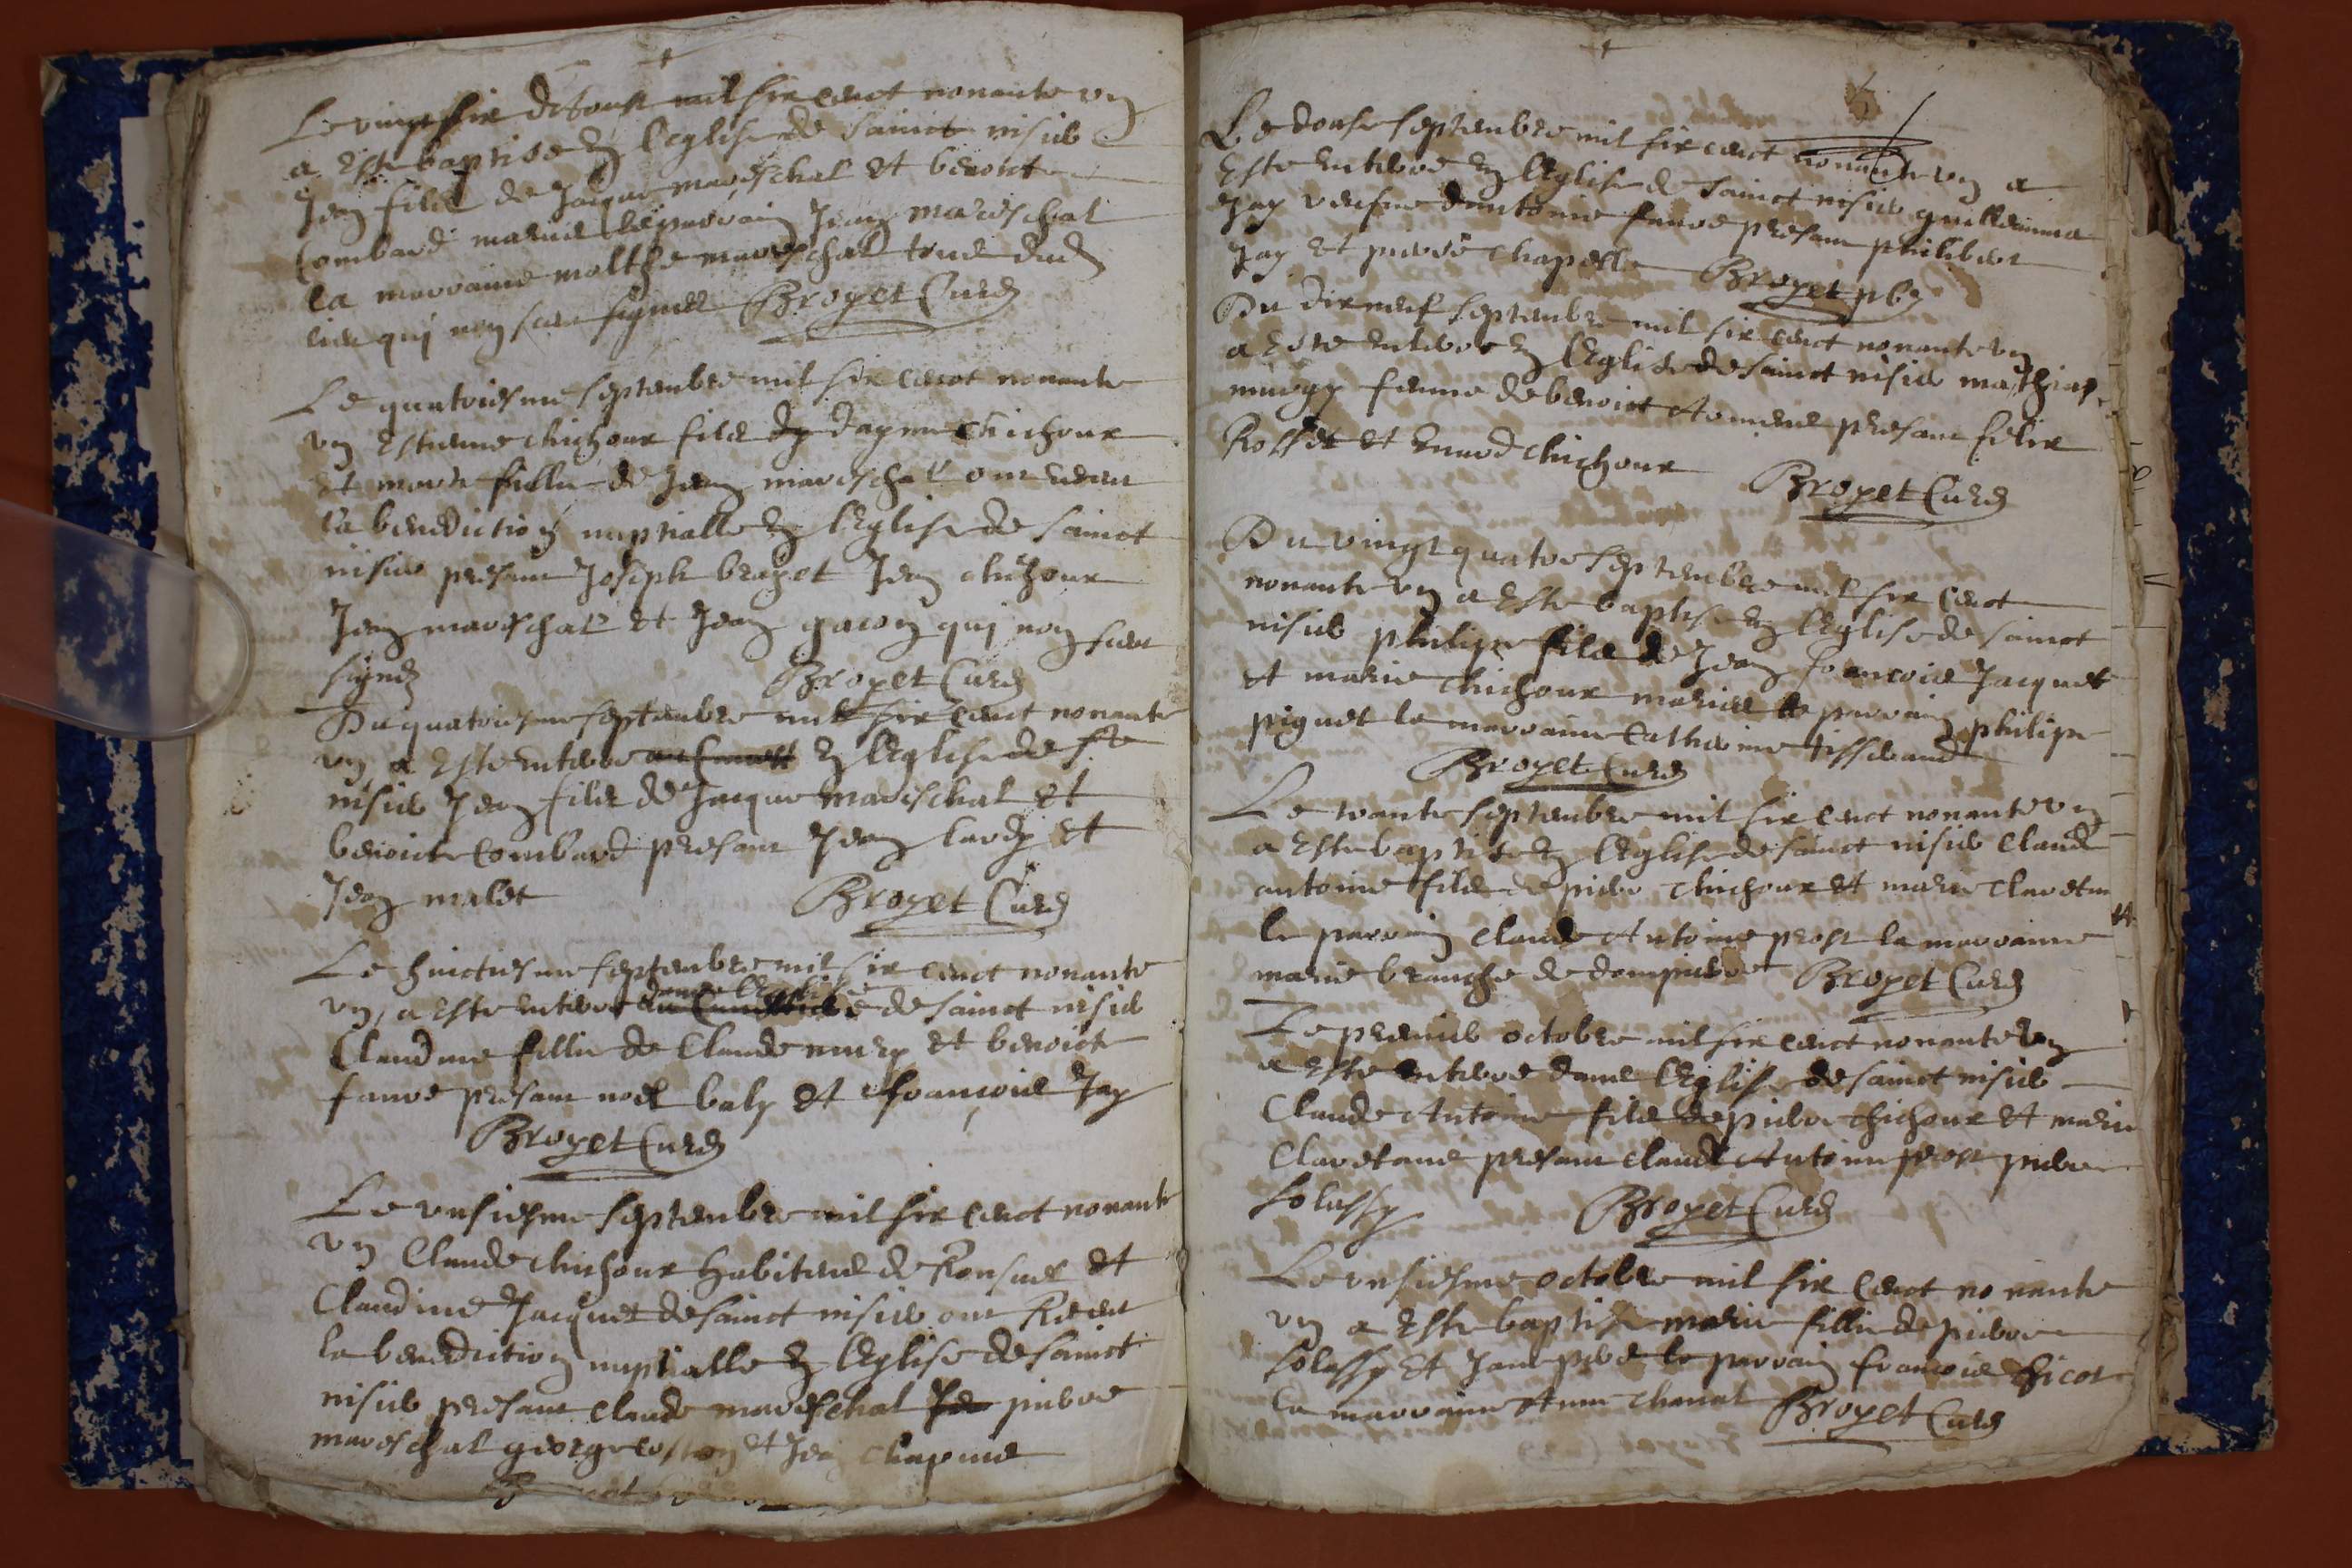 Le vingt six d'aoust mil six cenct nonante un
a este baptisé en l'eglise de sainct nisié
Jean fils de Jacque mareschal et benoicte
Combard mariés le parrain Jean mareschal
la marraine mareschal tous dud
lieu qui non sceu signer Broyet Curé
Le quatoiesme septembre mil six cenct nonante
un Estienne chichoux fils chichoux
et marie fillie de Jean mareschal ont receu
la benediction nuptialle en l'Eglise de sainct
nisié presant Joseph brayet Jean chichoux
Jean mareschal et Jean gacon qui non sceu
signer Broyet Curé
Du quatoiesme septembre mil six cenct nonante
un a este enterré en l'Eglise de st
nisié Jean fils de Jacque mareschal et
benoicte Combard presant Jean lardy et
Jean malet Broyet Curé
Le huictiesme septembre mil six cenct nonante
un a este enterré dans l'Eglise de sainct nisié
Claudine fillie de Claude et benoicte
favre presant noel baly et francois Jay
Broyet Curé
Le unsiesme septembre mil six cenct nonante
un Claude chichoux habitant de Ronsuel et
Claudine Jacquet de sainct nisié ont Receu
la benediction nuptialle en l'Eglise de sainct
nisié presant Claude mareschal pierre
mareschal george et Jean chapuis
Le douse septembre mil six cenct nonante un a
Este enterré en l'Eglise de sainct nisié guillauma
Jay veusve d'antoine favre presant philibert
Jay et pierre chapelle Broyet pbr
Du dix neuf septembre mil six cenct nonante un
a este enterré en l'Eglise de sainct nisié
femme de benoict presant felix
Rosset et Enard chichoux Broyet Curé
Du vingt quatre septembre mil six cenct
nonante un a este baptisé en l'Eglise de sainct
nisié philipe fils de Jean francois Jacquet
et marie chichoux mariés le parrain philipe
piguet la marraine Catherine tisserand
Broyet Curé
Le trante septembre mil six cenct nonante un
a este baptisé en l'Eglise de sainct nisié Claude
antoine fils de pierre chichoux et marie
le parrain Claude Antoine prost la marraine
marie branche de dompierre Broyet Curé
Le premié octobre mil six cenct nonante un
a este enterré dans l'Eglise de sainct nisié
Claude Antoine fils de pierre chichoux et marie
presant Claude Antoine prost pierre
solassy Broyet Curé
Le unsiesme octobre mil six cenct nonante
un a este baptisé marie fillie de pierre
solassy et le parrain francois
la marraine Anne chanal Broyet Curé